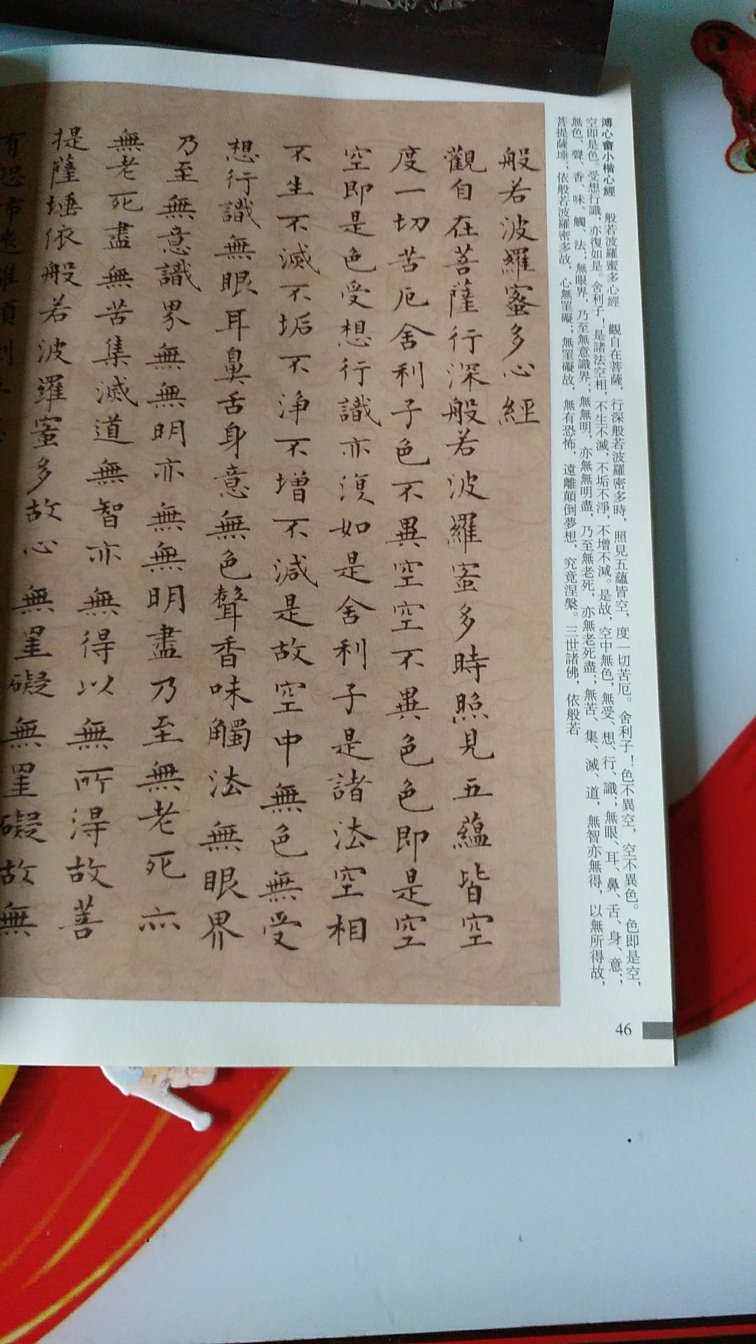 溥心畬小楷心經　般若波羅蜜多心經　觀自在菩薩，行深般若波羅密多時，照見五蘊皆空，度一切苦厄。舍利子！色不異空，空不異色。色即是空，
空即是色。受想行識，亦復如是。舍利子！是諸法空相，不生不滅，不垢不淨，不增不減。是故，空中無色，無受、想、行、識；無眼、耳、鼻、舌、身、意；
無色、聲、香、味、觸、法；無眼界，乃至無意識界；無無明，亦無無明盡，乃至無老死，亦無老死盡；無苦、集、滅、道，無智亦無得，以無所得故，
菩提薩埵；依般若波羅密多故，心無罣礙；無罣礙故，無有恐怖，遠離顛倒夢想，究竟涅槃。三世諸佛，依般若
般若波羅蜜多心經
觀自在菩薩行深般若波羅蜜多時照見五蘊皆空
度一切苦厄舍利子色不異空空不異色色即是空
空即是色受想行識亦復如是舍利子是諸法空相
不生不滅不垢不淨不增不減是故空中無色無受
想行識無眼耳鼻舌身意無色聲香味觸法無眼界
乃至無意識界無無明亦無無明盡乃至無老死亦
無老死盡無苦集滅道無智亦無得以無所得故菩
提薩埵依般若波羅蜜多故心無罣礙無罣礙故無
有恐怖遠離顛倒
46